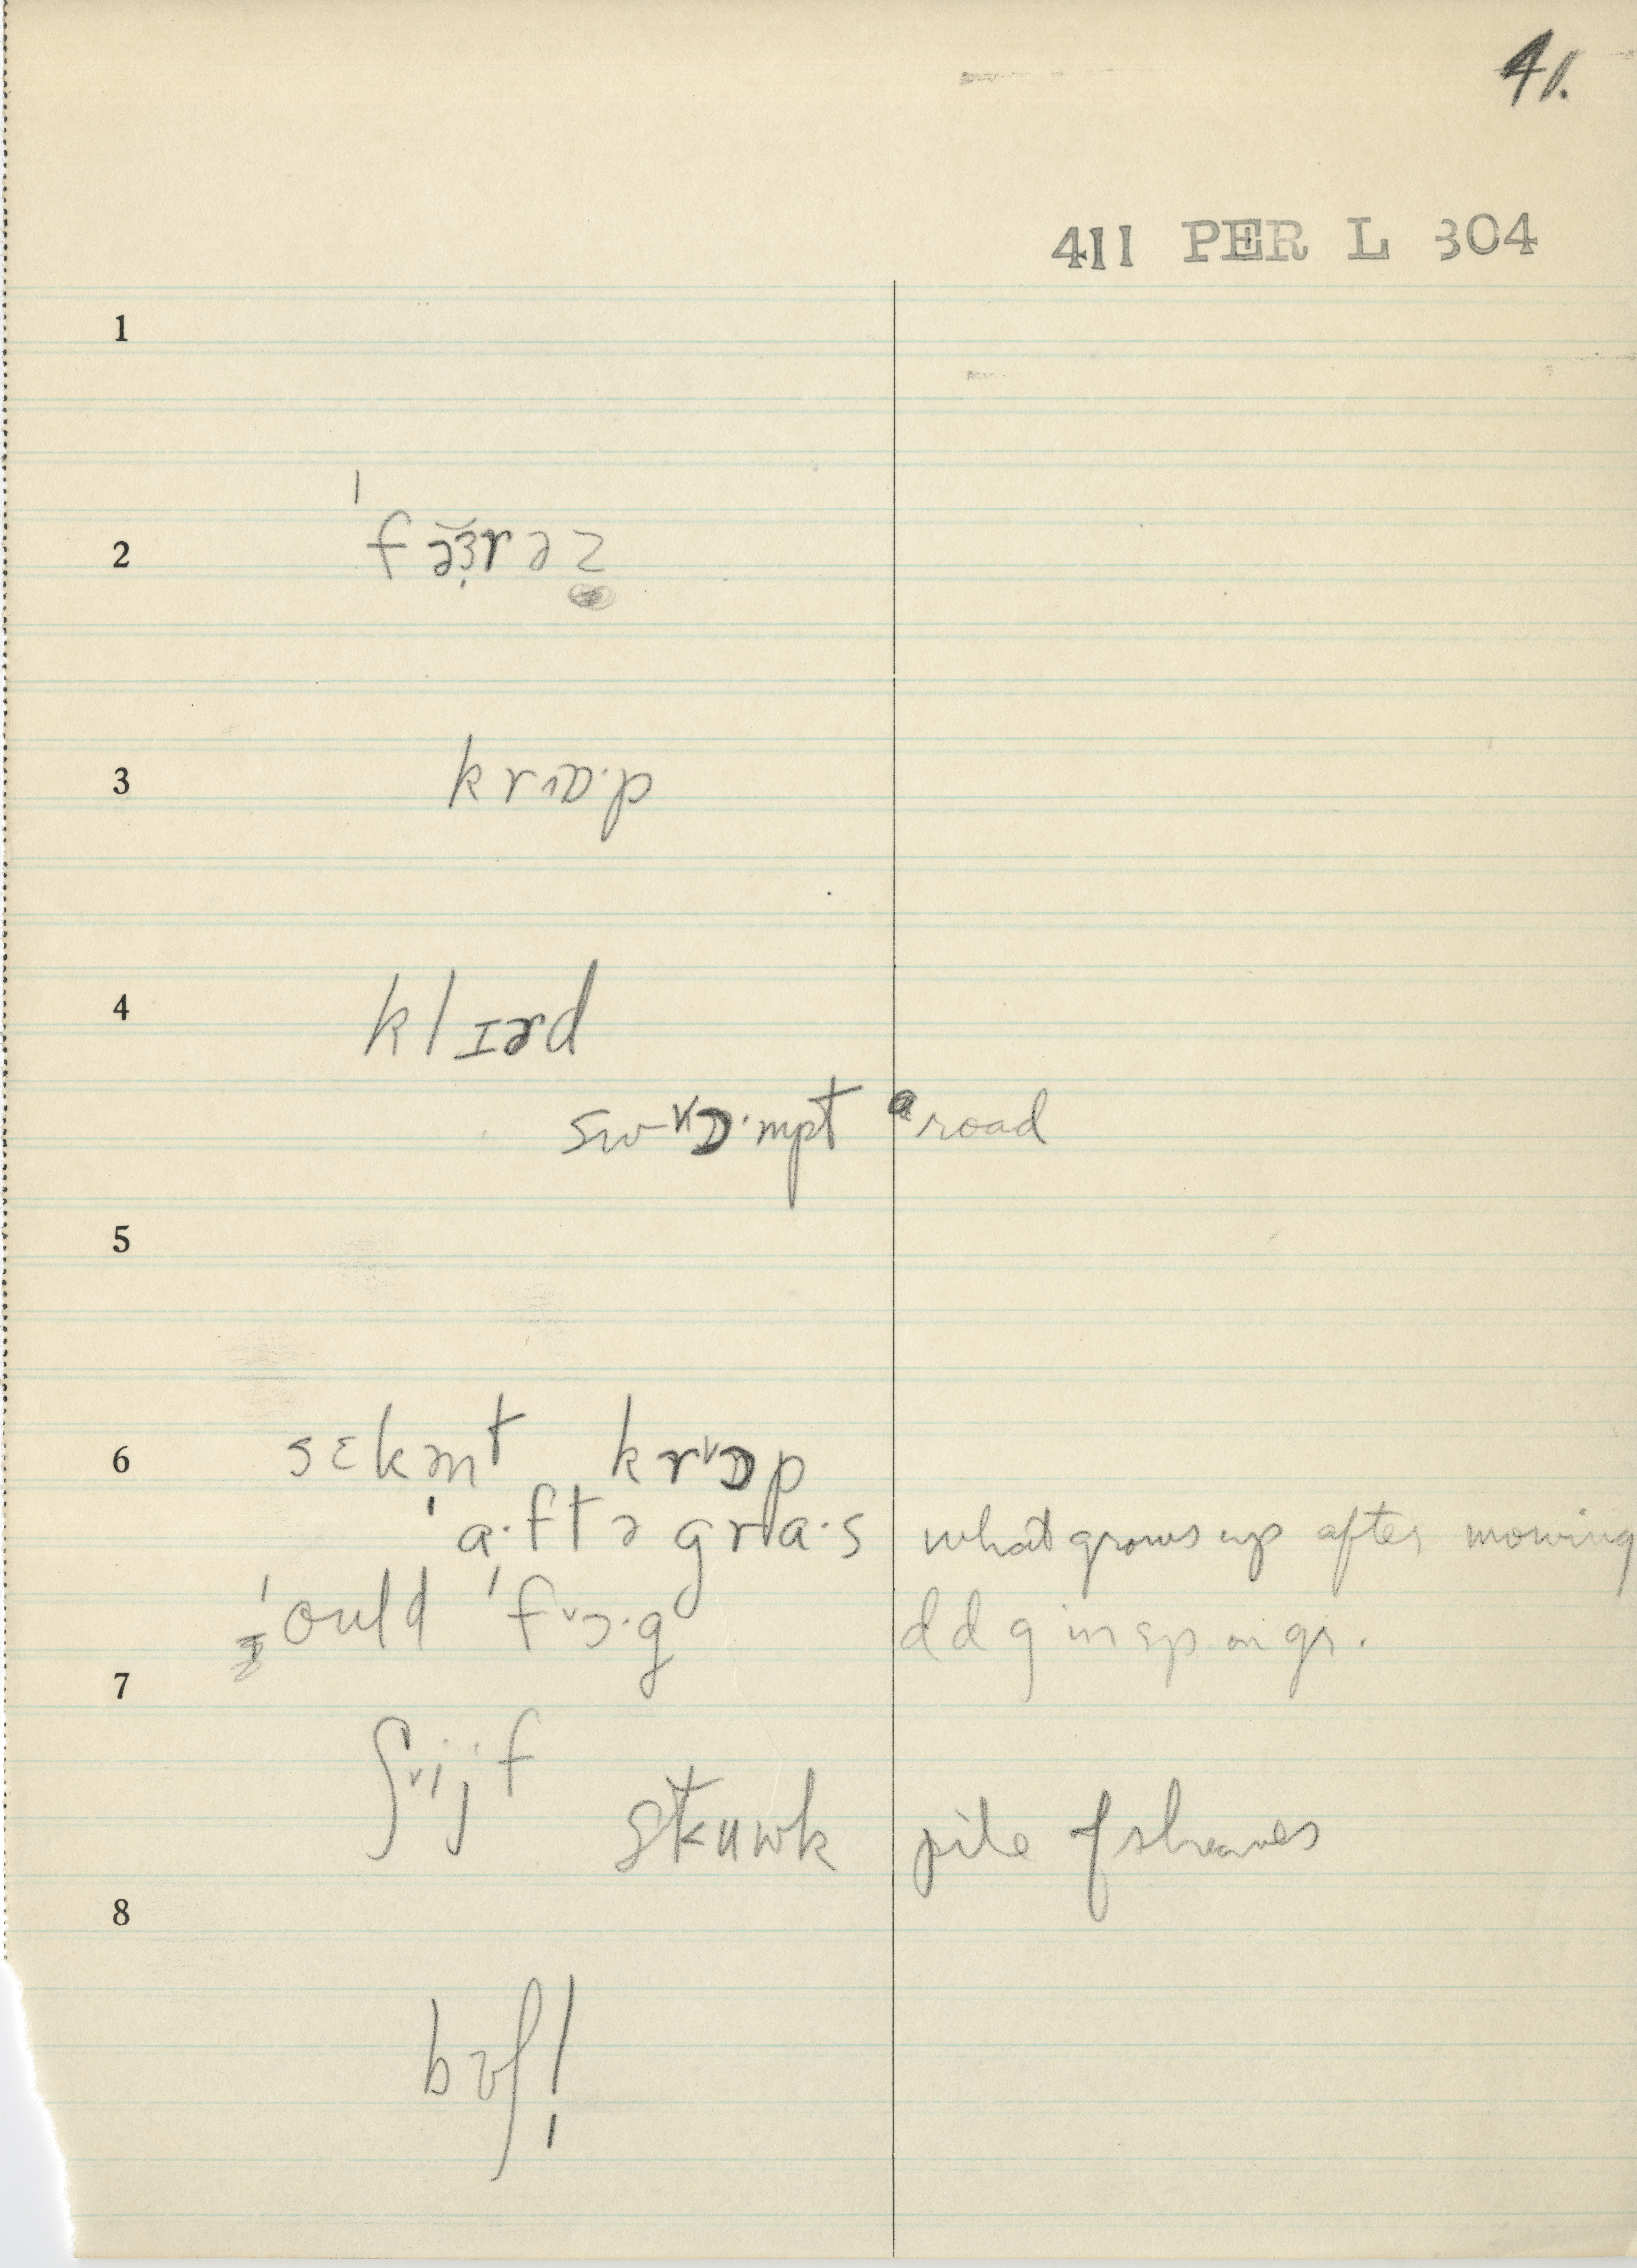 41.
411 PER L 304
1
2 ˈfə̆ɜ̣rəz
3 krɒ·p
4 klɪərd
swɒ·mpt a road
5
6 sɛkn̩t krɒp
ˈa·ftəgra·s what grows up after mowing
ˈould ˈfɔ·g d d g in sp on gr.
7 ʃijf
stuwk pile of sheaves
8
bʊʃl̩